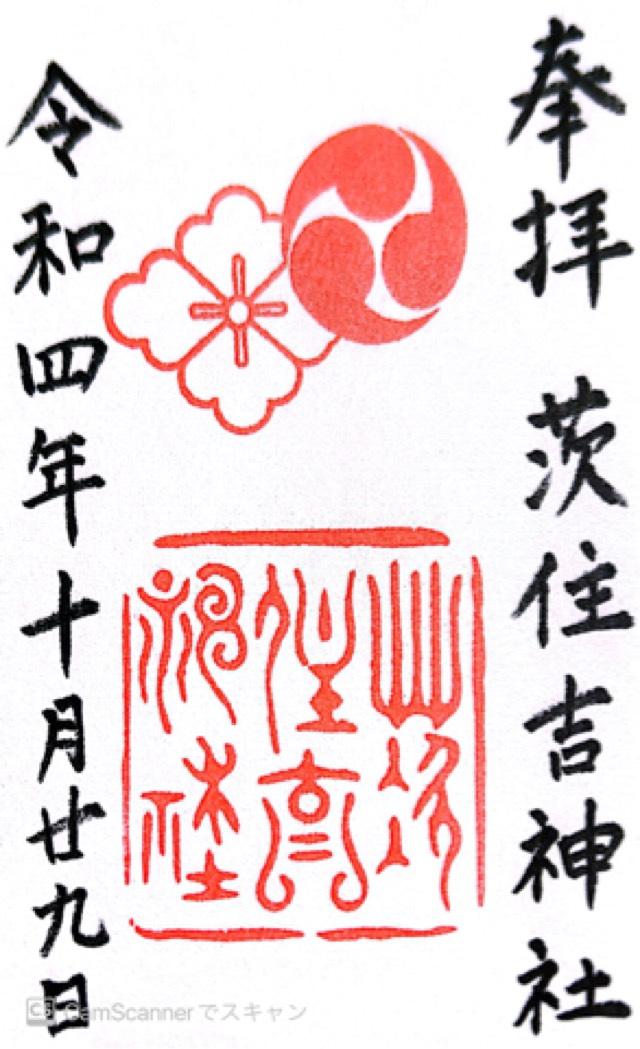 奉拝 茨住吉神社
令和四年十月廿九日
CS CamScannerでスキャン